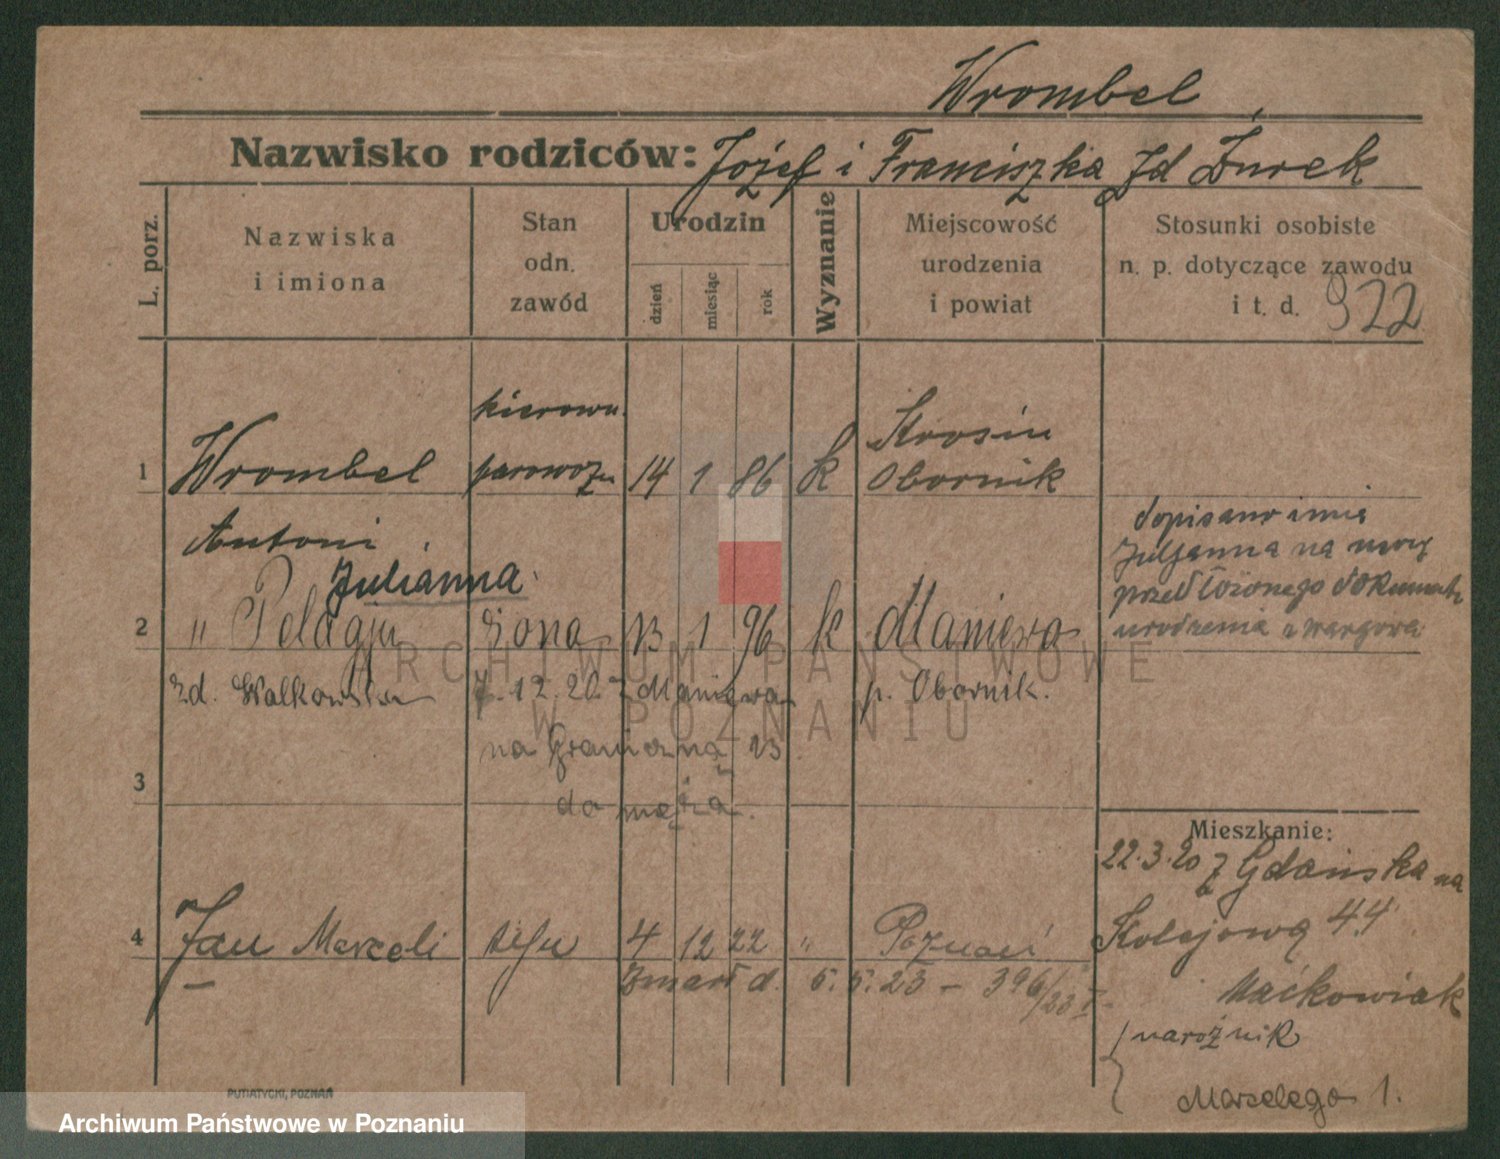 Wrombel
Nazwisko rodziców: Jożef i Franciszka zd Żurek
L. porz.
Nazwiska
i imiona
Stan
odn.
zawód
Urodzin
dzień
miesiąc
rok
Wyznanie
Miejscowość
urodzenia
i powiat
Stosunki osobiste
n. p. dotyczące zawodu
i t. d. 922
kierown.
parowozu
1 Wrombel 14 1 86 k
Krosin
Obornik
Antoni
Julianna
2 " Pelagju żona 13 1 96 k Maniewo
zd. Walkowska 7.12.20 z Maniewa p. Obornik.
na Graniczną 13
do męża.
dopisano imię
Juljanna na mocy
przedłożonego dokumentu
urodzenia z Wargowa
3
Mieszkanie:
22.3.20 z Gdańska na
Kolejową 44
Maćkowiak
narożnik
Marcelego 1.
4 Jan Marceli syn 4 12 22 " Poznań
Zmarł d. 5.5.23 - 396/23 I
PUTIATYCKI, POZNAŃ
ARCHIWUM PAŃSTWOWE
W POZNANIU
Archiwum Państwowe w Poznaniu